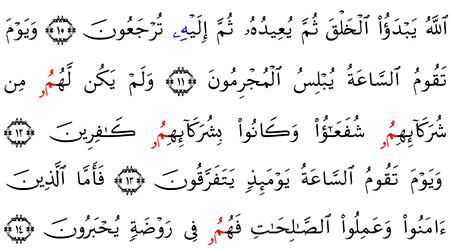 ٱللَّهُ يَبْدَؤُا۟ ٱلْخَلْقَ ثُمَّ يُعِيدُهُۥ ثُمَّ إِلَيْهِۦ تُرْجَعُونَ ۝١٠ وَيَوْمَ
تَقُومُ ٱلسَّاعَةُ يُبْلِسُ ٱلْمُجْرِمُونَ ۝١١ وَلَمْ يَكُن لَّهُمُۥ مِن
شُرَكَآئِهِمُۥ شُفَعَـٰٓؤُا۟ وَكَانُوا۟ بِشُرَكَآئِهِمُۥ كَـٰفِرِينَ ۝١٢
وَيَوْمَ تَقُومُ ٱلسَّاعَةُ يَوْمَئِذٍ يَتَفَرَّقُونَ ۝١٣ فَأَمَّا ٱلَّذِينَ
ءَامَنُوا۟ وَعَمِلُوا۟ ٱلصَّـٰلِحَـٰتِ فَهُمُۥ فِى رَوْضَةٍ يُحْبَرُونَ ۝١٤